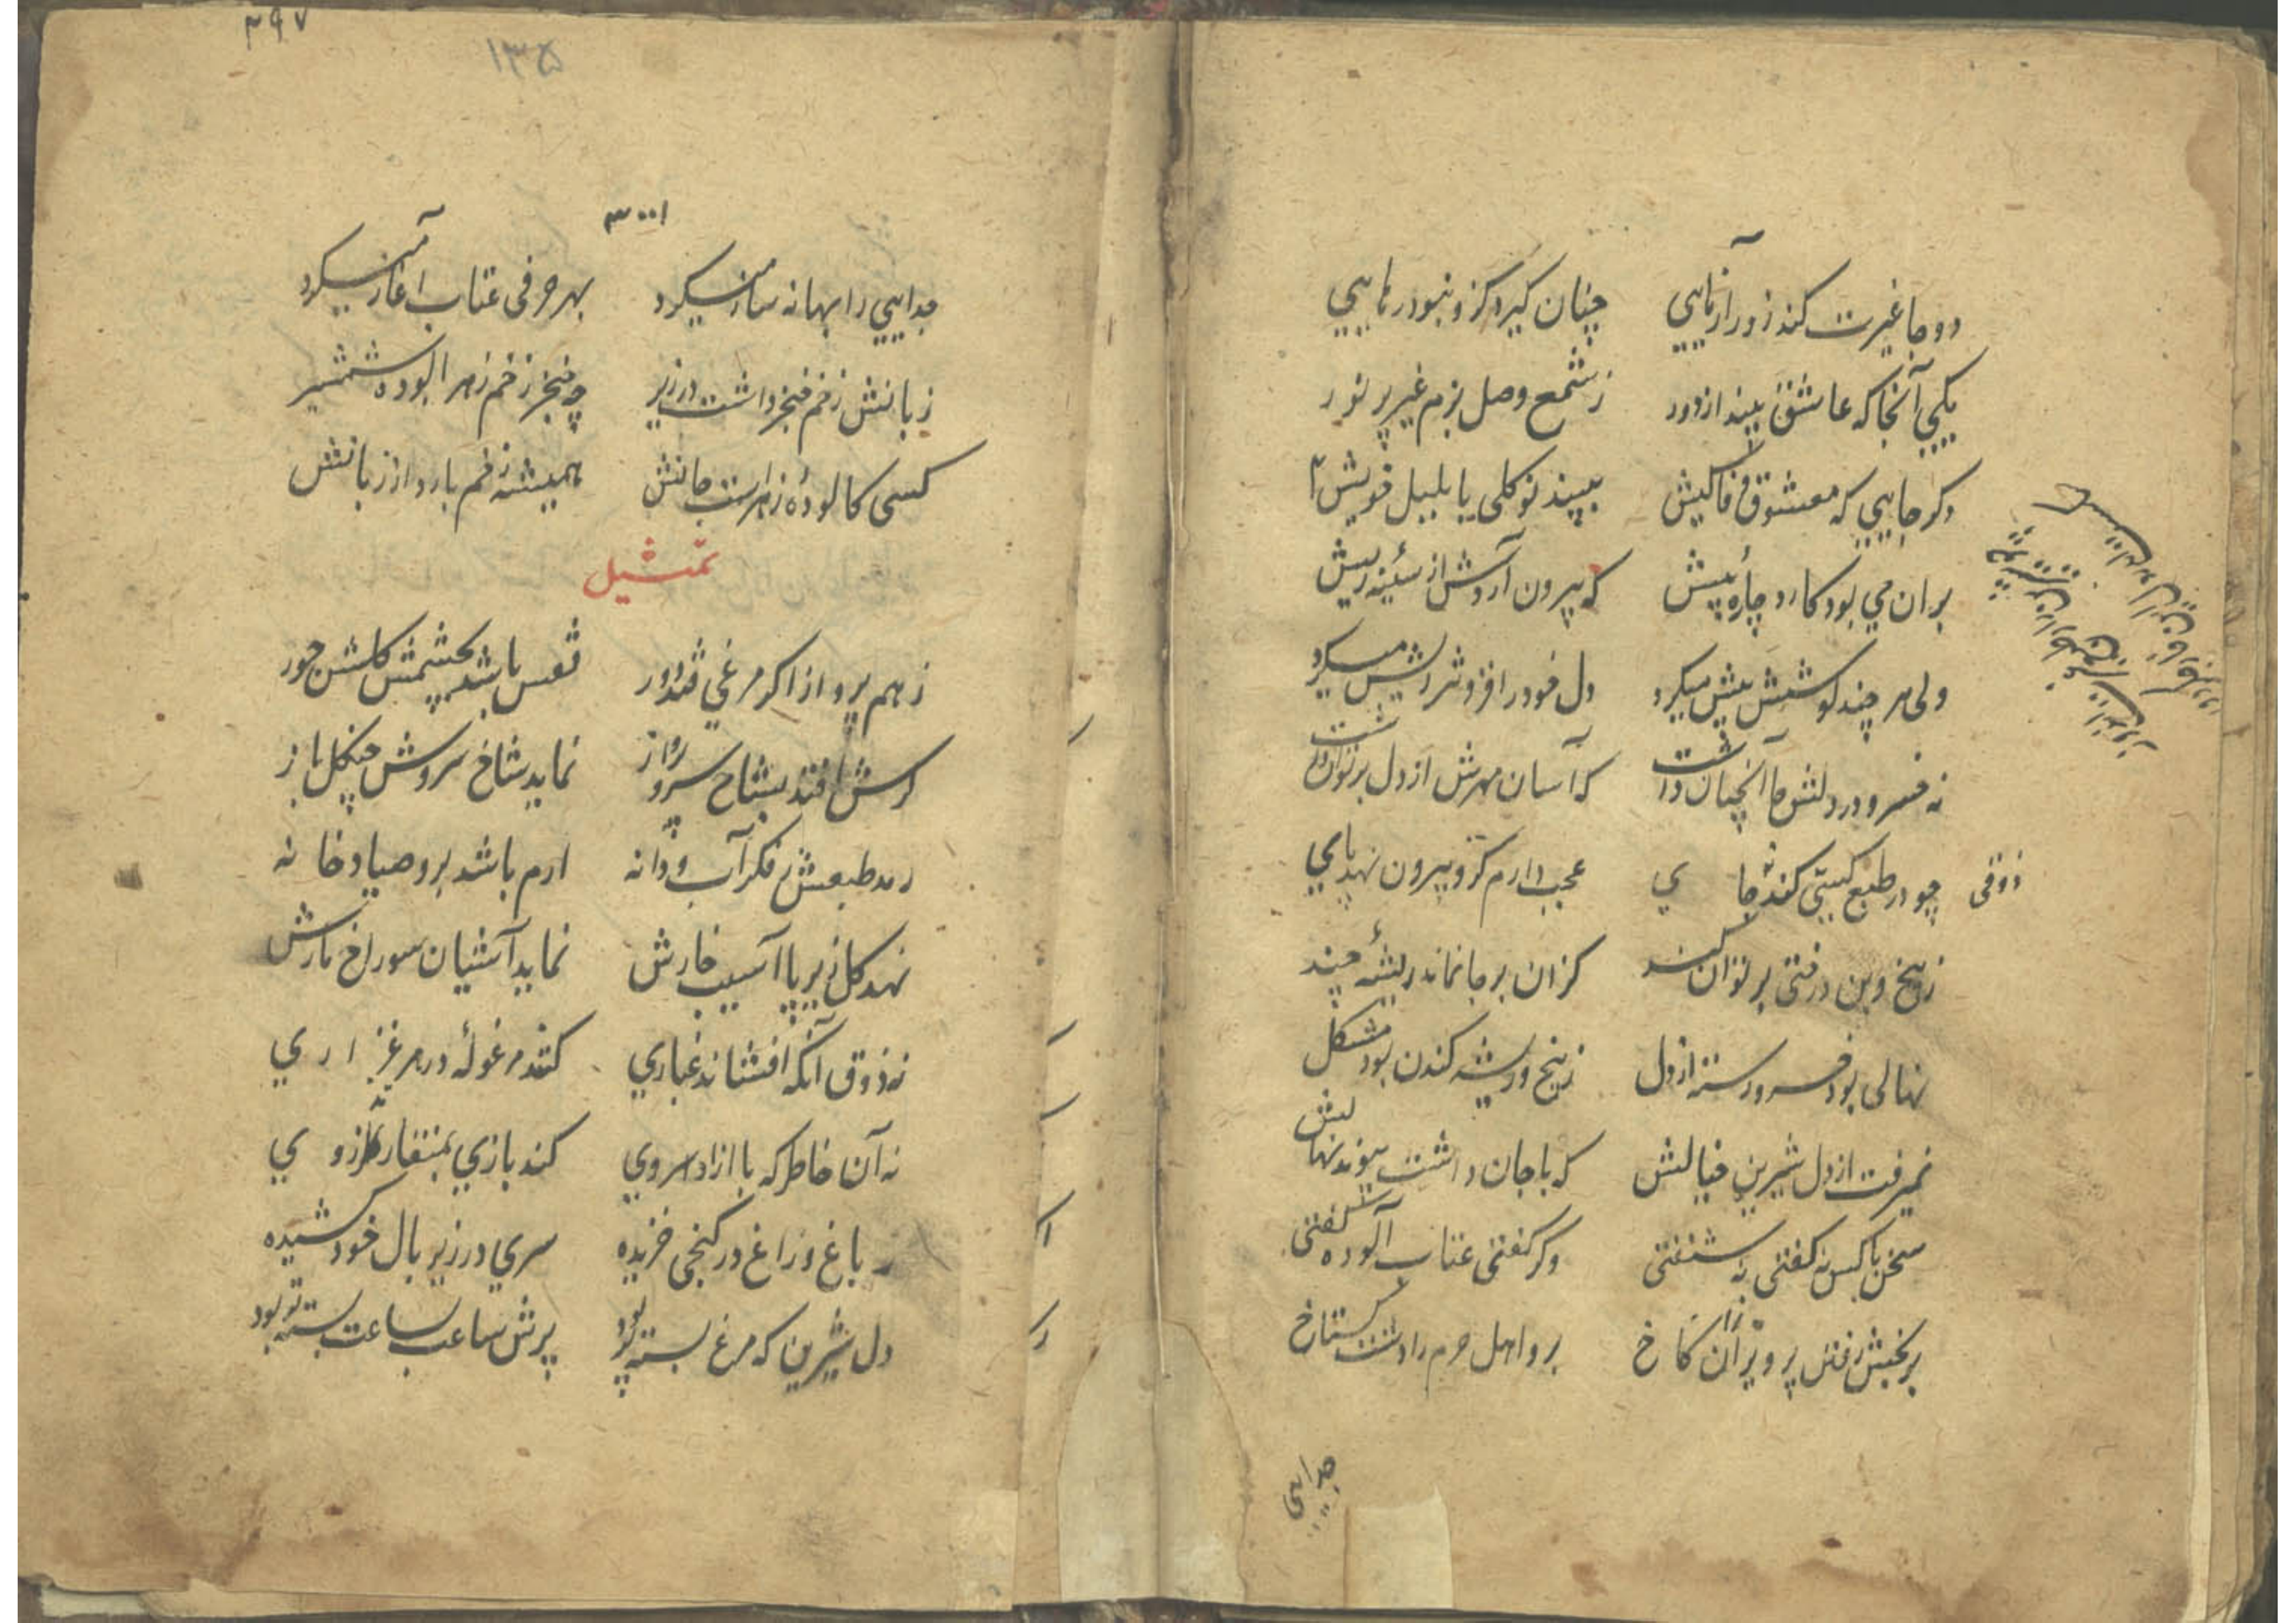 دو جا غیرت کند زور آزمایی چنان گیرد کزو نبود رهایی
یکی آنجا که عاشق بیند از دور ز شمع وصل بزم غیر پر نور
دگر جایی که معشوق وفا کیش ببیند نو گلی با بلبل خویش
بر آن می بود کارد چاره پیش که بیرون آردش از سینه ریش
ولی هر چند کوشش بیش میکرد دل خود را فزونتر ریش میکرد
نه خسرو در دلش جا آنچنان داشت که آسان مهرش از دل بر توان داشت
ذوقی چو در طبع کسی کند جای عجب دارم کزو بیرون نهد پای
ز بیخ و بن درختی بر توان کند کزان بر جا نماند ریشه چند
نهالی بود خسرو رسته از دل ز بیخ و ریشه کندن بود مشکل
نمیرفت از دل شیرین خیالش که با جان داشت پیوند نهالش
سخن با کس نه گفتی نه شنفتی وگر گفتی عتاب آلوده گفتی
برنجش رفتن پرویز از آن کاخ برو اهل حرم را داشت گستاخ
جدایی
۲۹۷
۱۳۵
۳۰۰۱
جدایی را بهانه ساز میکرد بهر حرفی عتاب آغاز میکرد
زبانش زخم خنجر داشت در زیر چه خنجر زخم زهر آلوده شمشیر
کسی کالوده زهرست جانش همیشه زخم بارد از زبانش
تمثیل
ز هم پرواز اگر مرغی فتد دور قفس باشد بچشمش گلشن حور
گرش افتد بشاخ سرو پرواز نماید شاخ سروش چنگل باز
رمد طبعش ز فکر آب و دانه ارم باشد برو صیادخانه
نهد گل زیر پا آسیب خارش نماید آشیان سوراخ مارش
نه ذوق آنکه افشاند غباری کند مرغوله در مرغزاری
نه آن خاطر که با آزاد سروی کند بازی بمنقار تذروی
ز باغ و راغ در کنجی خزیده سری در زیر بال خود کشیده
دل شیرین که مرغ بسته پر بود پرش ساعت بساعت بسته تر بود